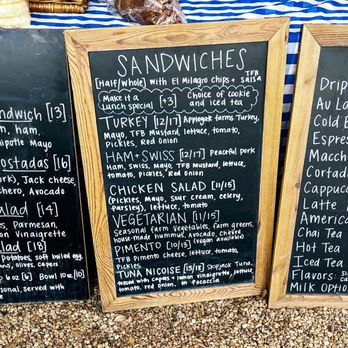 SANDWICHES
[Half/whole] with El Milagro chips + TFB Salsa
Make it a
Lunch special [+3] Choice of cookie
and iced tea
TURKEY [12/17] Applegate farms Turkey,
Mayo, TFB Mustard, lettuce, tomato,
Pickles, Red Onion
HAM+SWISS [12/17] Peaceful pork
Ham, Swiss, Mayo, TFB Mustard, lettuce,
tomato, Pickles, Red onion
CHICKEN SALAD [11/15]
(Pickles, Mayo, sour cream, celery,
parsley), lettuce, tomato
VEGETARIAN [11/15]
Seasonal farm Vegetables, farm greens,
house-made hummus, Avocado, Cheese
(vegan available)
PIMENTO [10/13]
TFB Pimento Cheese, lettuce, tomato,
Pickles
TUNA NICOISE [13/18] Skipjack Tuna,
tossed with capers + lemon vinaigrette, lettuce,
tomato, red onion, on focaccia
andwich [13]
n, ham,
hipotle Mayo
ostadas [16]
ork), Jack cheese,
chero, Avocado
alad [14]
es, Parmesan,
on Vinaigrette
alad [18]
potatoes, soft boiled egg,
ans, olives, capers
6 oz [6] Bowl 10oz [10]
easonal,
served with
Drip
Au La
Cold B
Espres
Macch
Cortad
Cappuc
Latte
America
Chai Tea
Hot Tea
Iced Tea
Flavors: S
Milk Option